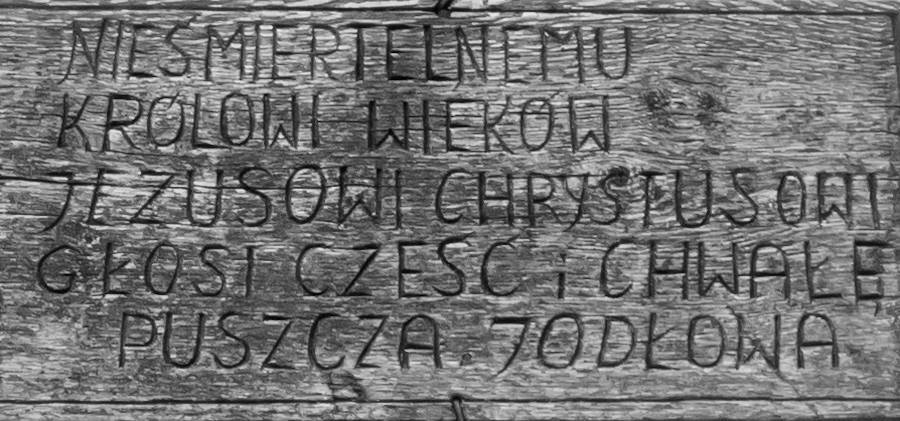 NIEŚMIERTELNEMU
KRÓLOWI WIEKÓW
JEZUSOWI CHRYSTUSOWI
GŁOSI CZEŚĆ i CHWAŁĘ
PUSZCZA. JODŁOWA